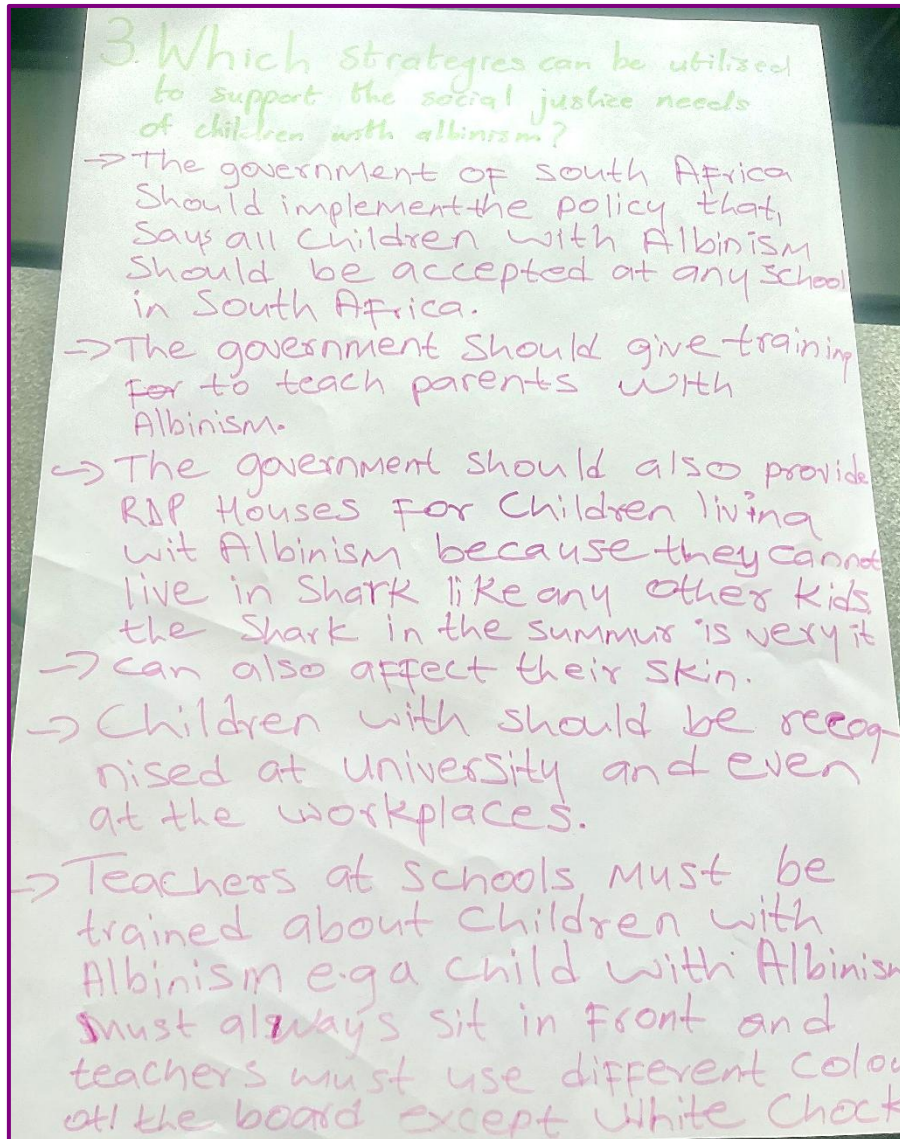 3. Which strategies can be utilised
to support the social justice needs
of children with albinism?
→ The government of south Africa
Should implement the policy that,
Says all children with Albinism
Should be accepted at any school
in South Africa.
→ The government Should give training
For to teach parents with
Albinism.
→ The government should also provide
RDP Houses For Children living
wit Albinism because they cannot
live in Shark like any other kids.
the Shark in the summur is very it
→ can also affect their skin.
→ Children with should be recog-
nised at university and even
at the workplaces.
→ Teachers at schools must be
trained about children with
Albinism e.g a child with Albinism
must always sit in Front and
teachers must use different Colou
the board except White Chock